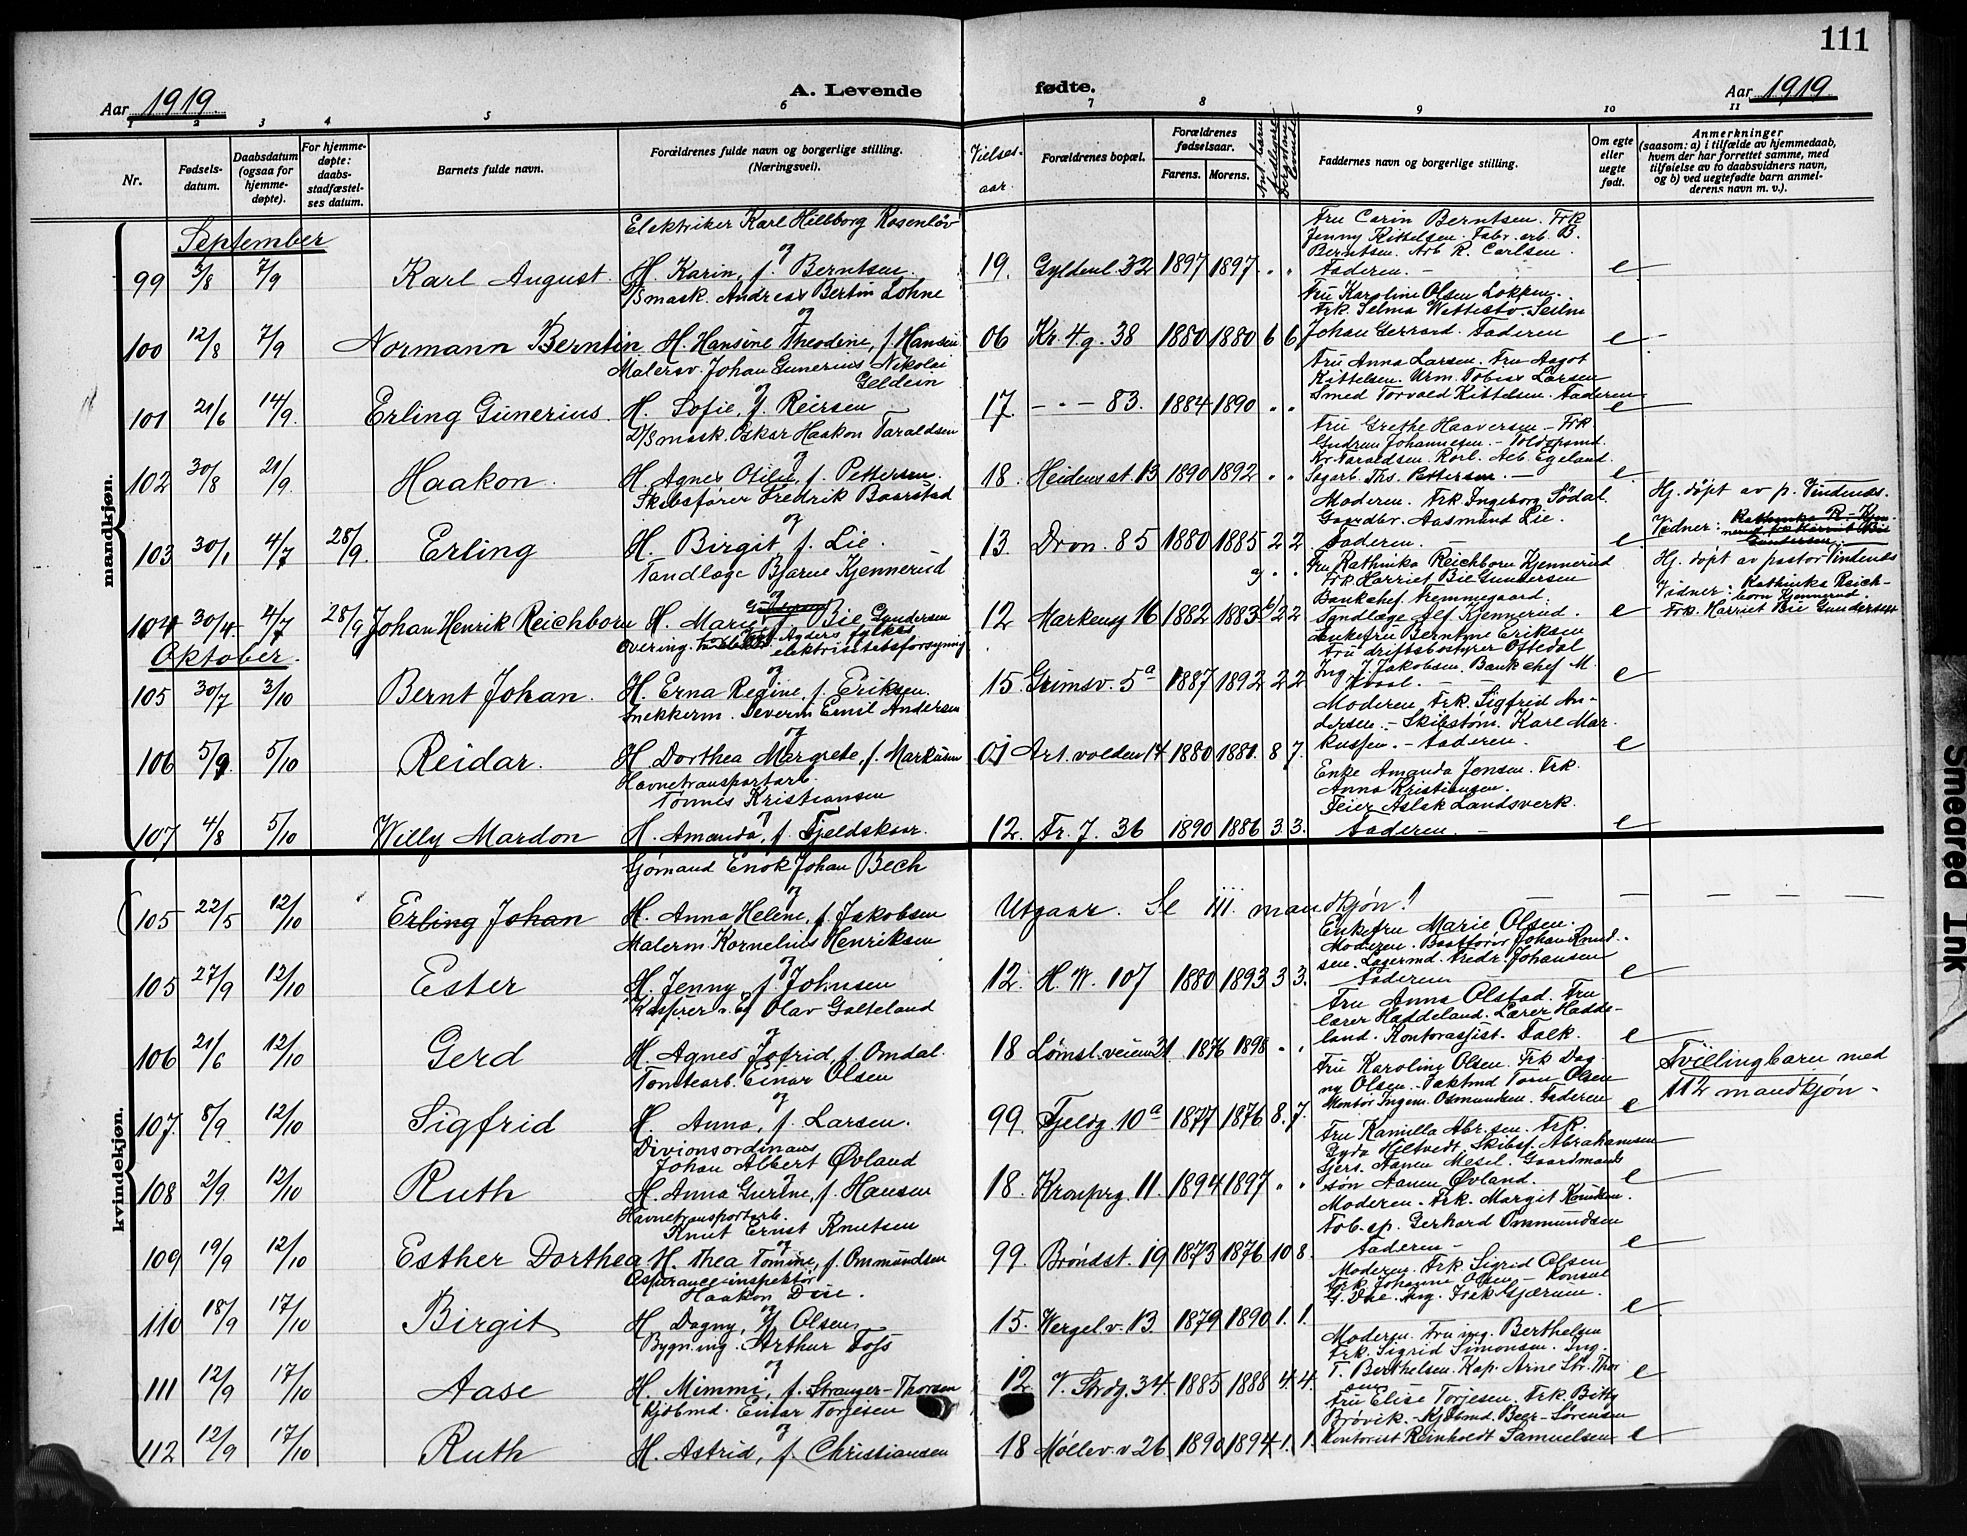 111
Aar 1919
A. Levende fødte.
Aar 1919
1 2 3 4 5 6 7 8 9 10 11
Nr.
Fødsels-
datum.
Daabsdatum
(ogsaa for
hjemme-
døpte).
For hjemme-
døpte:
daabs-
stadfæstel-
ses datum.
Barnets fulde navn.
Forældrenes fulde navn og borgerlige stilling.
(Næringsvei).
Vielses-
aar.
Forældrenes bopæl.
Forældrenes
fødselsaar.
Farens. Morens.
Faddernes navn og borgerlige stilling.
Om egte
eller
uegte
født.
Anmerkninger
(saasom: a) i tilfælde av hjemmedaab,
hvem der har forrettet samme, med
tilføielse av to daabsvidners navn,
og b) ved uegtefødte barn anmel-
derens navn m. v.).
mandkjøn.
September
99 3/8 7/9 Karl August
Elektriker Karl Hilbborg Rosenløv
og
H. Karin, f. Berntsen.
19. Gyldenl. 32 1897 1897 " "
Fru Carin Berntsen. Frk
Jenny Kittelsen. Fabr. arb. B.
Berntsen. Arb R. Carlsen.
Faderen. - e
100 12/8 7/9 Normann Berntin
D/Smask. Andreas Bertin Lohne
og
H. Hansine Theodine, f. Hansen
06 Kr. 4 g. 38 1880 1880 6 6
Fru Karoline Olsen Løkken.
Frk. Selma Wettestø. Seilm
Johan Gerrard. Faderen e
101 21/6 14/9 Erling Gunerius
Malersv. Johan Gunerius Nikolai
Geldein
og
H. Sofie, f. Reiersen
17. - " - 83. 1884 1890 " "
Fru Anna Larsen. Fru Aagot
Kittelsen. Urm. Tobias Larsen
Smed Torvald Kittelsen. Faderen e
102 30/8 21/9 Haakon
D/Smask. Oskar Haakon Taraldsen
og
H. Agnes Otilie, f. Pettersen.
18. Heidens st. 13 1890 1892 " "
Fru Grethe Haaversen - Frk
Gudrun Johannesen. - Toldopsmd.
Kr. Taraldsen Korl. Aeb. Egeland.
Sagarb. Ths. Pettersen. - e
103 30/1 4/7 28/9. Erling
Skibsfører Fredrik Baarstad
og
H. Birgit f. Lie.
13. Dron. 85 1880 1885 2 2
Moderen. Frk Ingeborg Sødal.
Gaardbr. Aasmund Lie.
Faderen. - e
Hj. døpt av p. Vindenes.
Vidner:
104 30/4 4/7 28/9 Johan Henrik Reichborn
Tandlæge Bjarne Kjennerud
og
H. Marie f. Bie Gundersen
12 Markensg 16 1882 1883 2 2
Fru Kathinka Reichborn Kjennerud
Frk. Harriet Bie Gundersen
Bankchef Fremmegaard.
Tandlæge Alf Kjennerud. e
Hj. døpt av pastor Vindenes
Vidner: Kathinka Reich-
born Kjennerud.
Frk. Harriet Bie Gundersen
Oktober.
105 30/7 3/10 Bernt Johan.
Overing. Agders fylkes
elektrisitetsforsyning
og
H. Erna Regine, f. Eriksen.
15. Grimsv. 5a 1887 1892 2 2
Enkefru Berntine Eriksen
Fru driftsbestyrer Oftedal
Ing. J. Jakobsen. Bankchef M. e
106 5/9 5/10 Reidar.
Snekkerm. Severin Emil Andersen
og
H Dorthea Margrete, f. Markussen
01 Art. volden 14 1880 1880. 8 7.
Moderen Frk. Sigfrid An-
dersen. - Skibstøm. Karl Mar-
kussen. - Faderen. e
107 4/8 5/10 Willy Mardon
Havnetransportarb.
Tønnes Kristiansen
og
H. Amanda, f. Fjeldskaar.
12. Fr. 7. 36 1890 1886 3. 3.
Enke Amanda Jensen. Frk.
Anna Kristiansen.
Feier Aslak Landsverk.
Faderen. - e
kvindekjøn.
105 22/5 12/10 Erling Johan
Sjømand Enok Johan Bech
og
H. Anna Helene, f. Jakobsen
Utgaar. Se 111 mandkjøn!
105 27/9 12/10 Ester
Malerm. Kornelius Henriksen
og
H. Jenny, f. Johnsen
12. H. W. 107 1880 1893 3 3.
Enkefru Marie Olsen.
Moderen. Baatfører Johan Knud-
sen. Lagermd. Fredr. Johansen
Faderen - e
106 21/6 12/10 Gerd
Olav Galteland
og
H. Agnes Jofrid, f. Omdal.
18 Lømsl. veien 21 1876 1898 " "
Fru Anna Olstad. Fru
lærer Haddeland. Lærer Hadde-
land. Kontorassist. Falk. e
107. 8/9 12/10 Sigfrid
Tomtearb. Einar Olsen
og
H. Anna, f. Larsen.
99. Fjeldg. 10a 1877 1876 8. 7.
Fru Karoline Olsen. Frk Dag-
ny Olsen. - Taktmd Torn Olsen
Montør Ingem. Osmundsen. Faderen e
Tvillingbarn med
112 mandkjøn -
108 2/9 12/10 Ruth
Divionsordinans
Johan Albert Øvland
og
H. Anna Gurine, f. Hansen
18. Kronprg. 11. 1894 1897 " "
Fru Kamilla Abr.sen. Frk.
Gyda Hiltvedt. Skibsf. Abrahamsen
Gjers. Aanen Mesel. Gaardmands
søn Aanen Øvland. e
109 19/9 12/10 Esther Dorthea
Havnetransportarb.
Knut Ernst Knutsen
og
H. Thea Tomine, f. Ommundsen
99. Brøndst. 19 1873 1876 10 8.
Moderen. Frk. Margit Knudsen.
Tob. sp. Gerhard Ommundsen
Faderen - e
110 18/9 17/10 Birgit
Assuranceinspektør
Haakon Due.
og
H Dagny, f. Olsen
15. Wergel. v. 13. 1879 1890 1. 1.
Moderen. Frk Sigrid Olsen
Frk. Johanne Olsen - Konsul
e
111 12/9 17/10 Aase
Bygn. ing. Arthur Foss
og
H. Mimmi, f. Stranger-Thorsen
12. V. Strdg. 34. 1885 1888 4. 4.
Moderen. Fru ing. Berthelsen
Frk. Sigrid Simonsen. Ing.
T. Berthelsen. Kap. Arne Str. Thor-
sen e
112 12/9 17/10 Ruth
Kjøbmd. Einar Torjesen
og
H. Astrid, f. Christiansen
18 Møllev. v 26. 1890 1894 1. 1.
Fru Elise Torjesen. Frk. Bitty
Brøvik. - Kjøbmd. Beer-Sørensen
Kontorist Reinholdt Samuelsen e
Smeared Ink